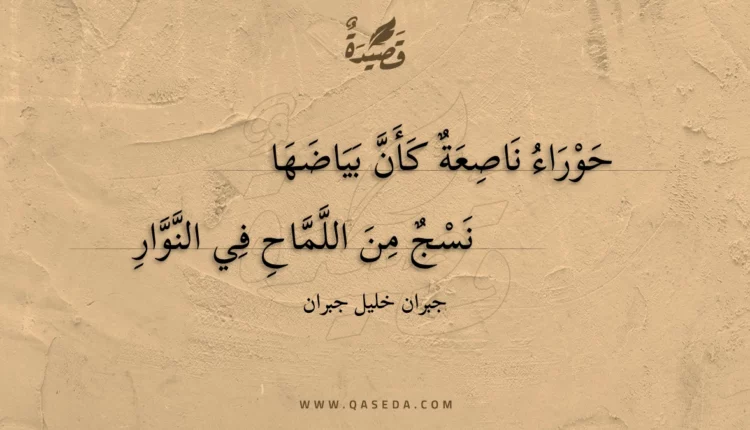 قَصِيدَةٌ
حَوْرَاءُ نَاصِعَةٌ كَأَنَّ بَيَاضَهَا
نَسْجٌ مِنَ اللَّمَّاحِ فِي النَّوَّارِ
جبران خليل جبران
WWW.QASEDA.COM